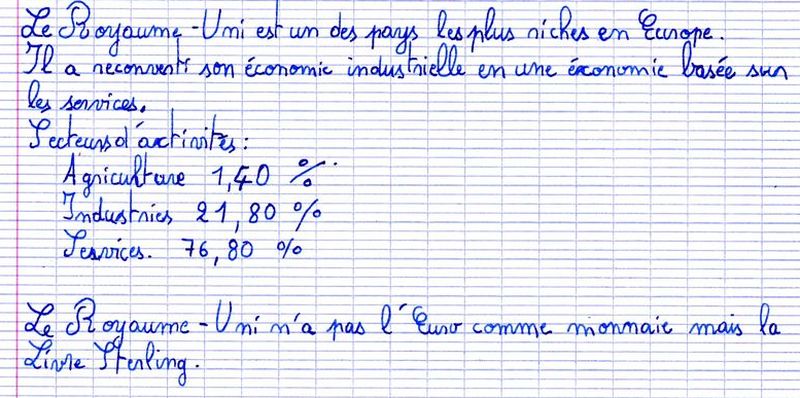 Le Royaume-Uni est un des pays les plus riches en Europe.
Il a reconverti son économie industrielle en une économie basée sur
les services.
Secteurs d'activités :
Agriculture 1,40 %.
Industries 21,80 %
Services. 76,80 %
Le Royaume-Uni n'a pas l'Euro comme monnaie mais la
Livre Sterling.